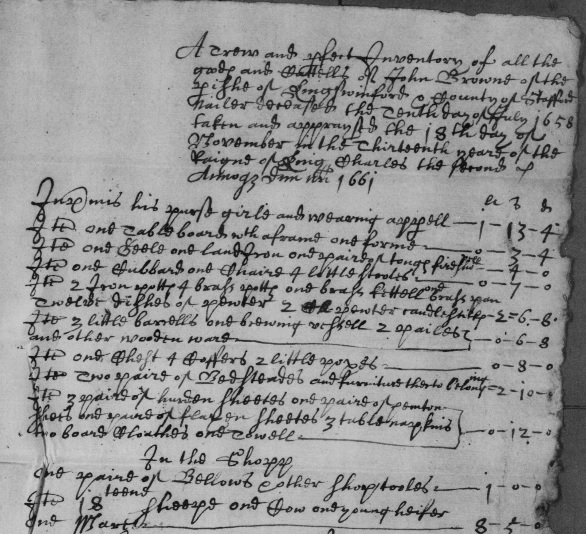 A trew and pfect Inventory of all the
goods and Cattells of John Browne of the
pishe of Kingswinford & County of Stafford
Nailer deceased the Tenth day of July 1658
taken and apprysed the 18th day of
November in the Thirteenth yeare of the
Raigne of King Charles the second
Annoqz Dmi 1661
li s d
Inpmis his purse girle and wearing appell — 1 - 13 - 4
Ite one Table board wth a frame one forme — 0 - 3 - 4
Ite one one land Iron one paire of tongs fireshoell — 0 - 4 - 0
Ite one Cubbard one Chaire 4 little stooles — 0 - 7 - 0
Ite 2 Iron potts 4 brass potts one brass kettell brass pan
Twelve dishes of pewter 2 pewter candlesticks - 2 = 6 - 8
Ite 3 little barrells one brewing vessell 2 pailes
and other wooden ware — 0 - 6 - 8
Ite one Chest 4 Coffers 2 little boxes — 0 - 8 - 0
Ite Two paire of Bedsteades and furniture therto belonging - 2 - 10 - 0
Ite 3 paire of hurden sheetes one paire of
sheets one paire of flaxen sheetes 3 table napkins
two board Cloathes one Towell — 0 - 12 - 0
In the Shopp
one paire of Bellows & other shop tooles — 1 - 0 - 0
Ite 18teene sheepe one Cow one young heifer
one Mare — 8 - 5 - 0